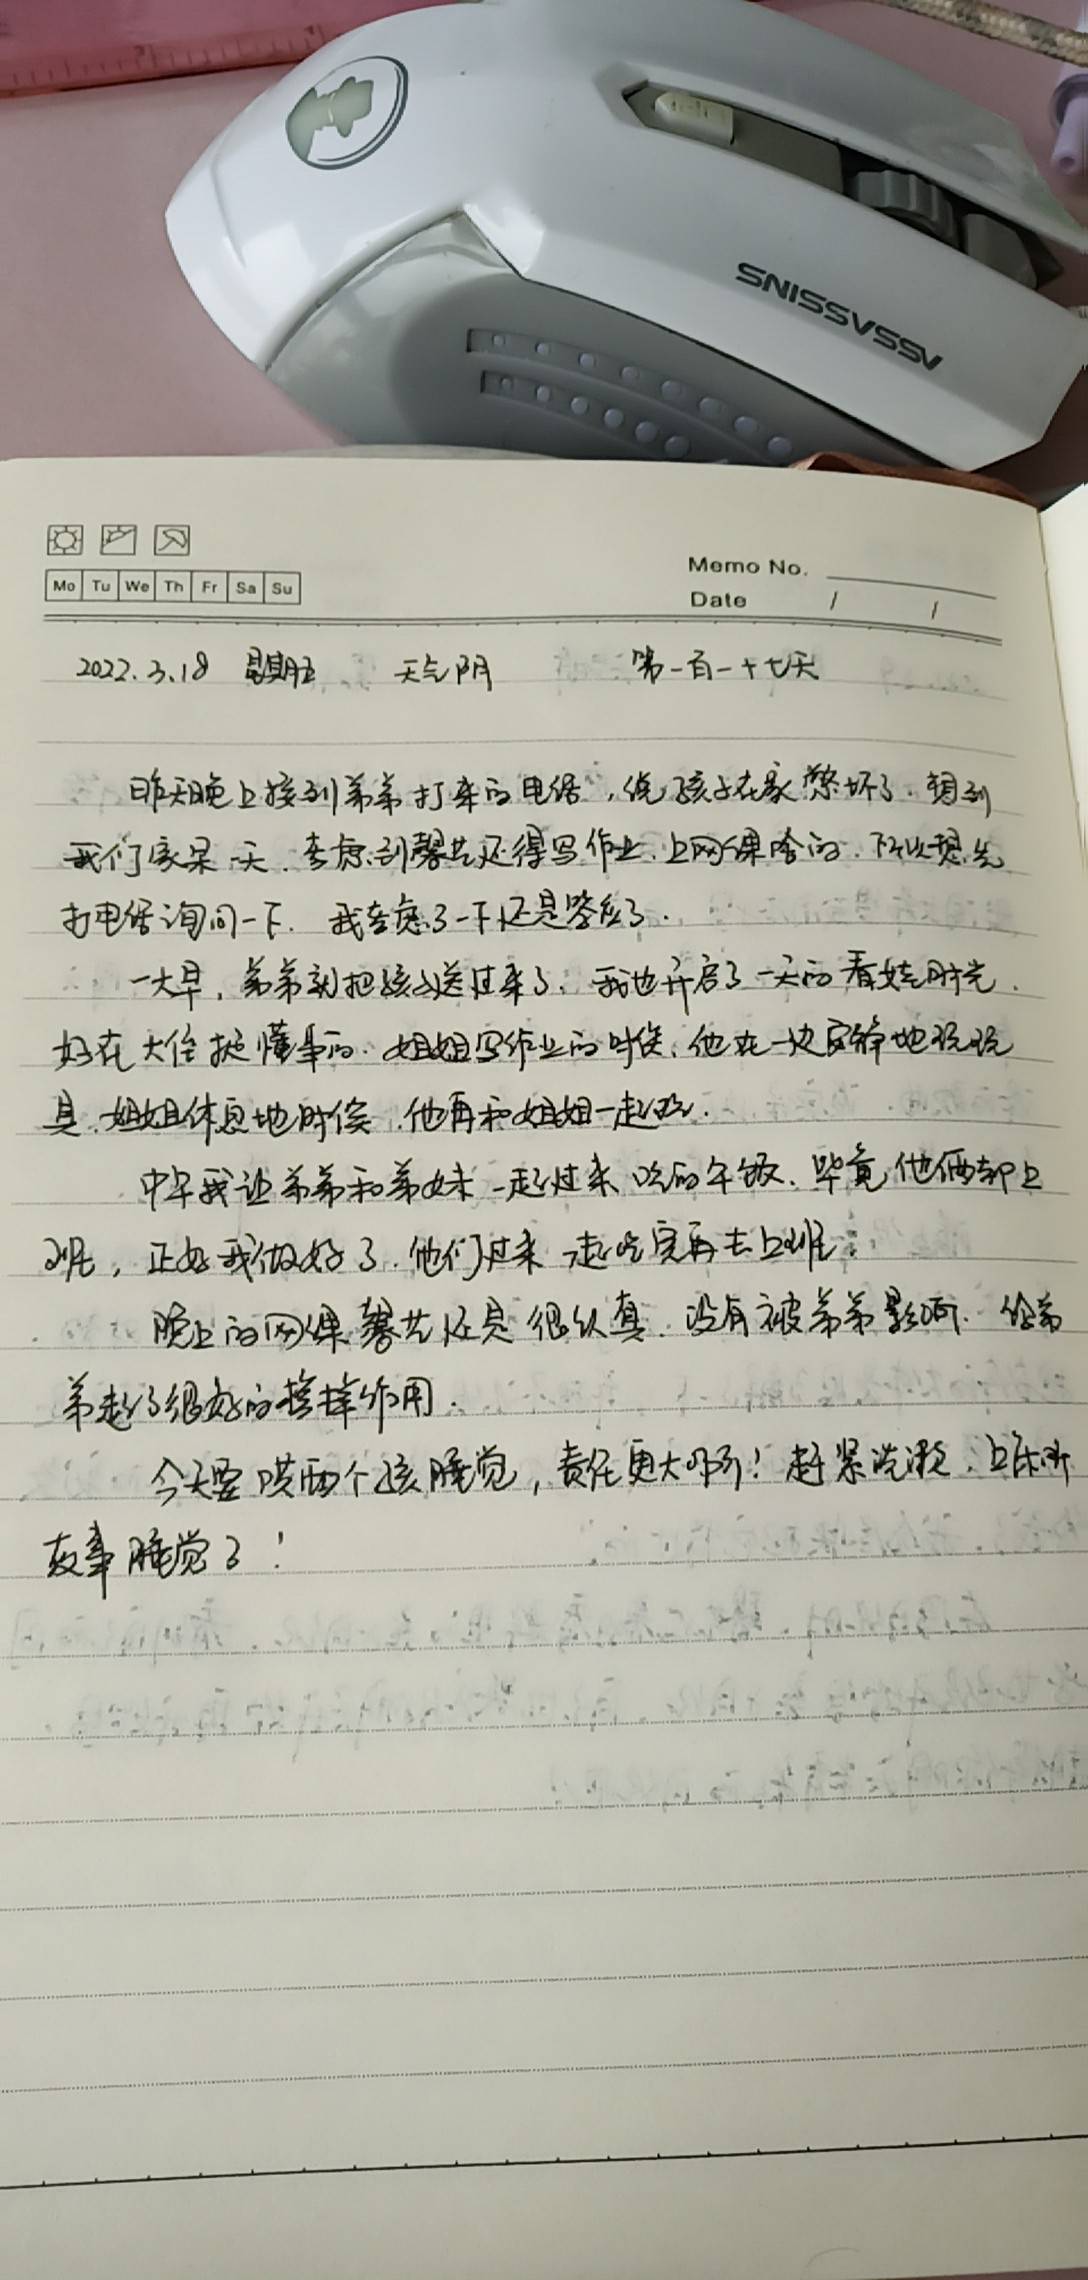 ASSASSINS
Mo Tu We Th Fr Sa Su
Memo No.
Date / /
2022.3.18 星期五 天气阴 第一百一十七天
昨天晚上接到弟弟打来的电话，说孩子在家憋坏了.想到
我们家呆一天.考虑到馨艺还得写作业.上网课啥的.所以想先
打电话询问一下.我考虑了一下还是答应了.
一大早，弟弟就把孩子送过来了.我也开启了一天的看娃时光.
好在大侄挺懂事的.姐姐写作业的时候,他在一边安静地玩玩
具.姐姐休息地时候.他再和姐姐一起玩.
中午我让弟弟和弟妹一起过来吃的午饭.毕竟他俩都上
班，正好我做好了.他们过来一起吃完再去上班.
晚上的网课馨艺还是很认真.没有被弟弟影响.给弟
弟起了很好的榜样作用.
今天要哄两个孩睡觉，责任更大啊！赶紧洗漱.上床听
故事睡觉了！